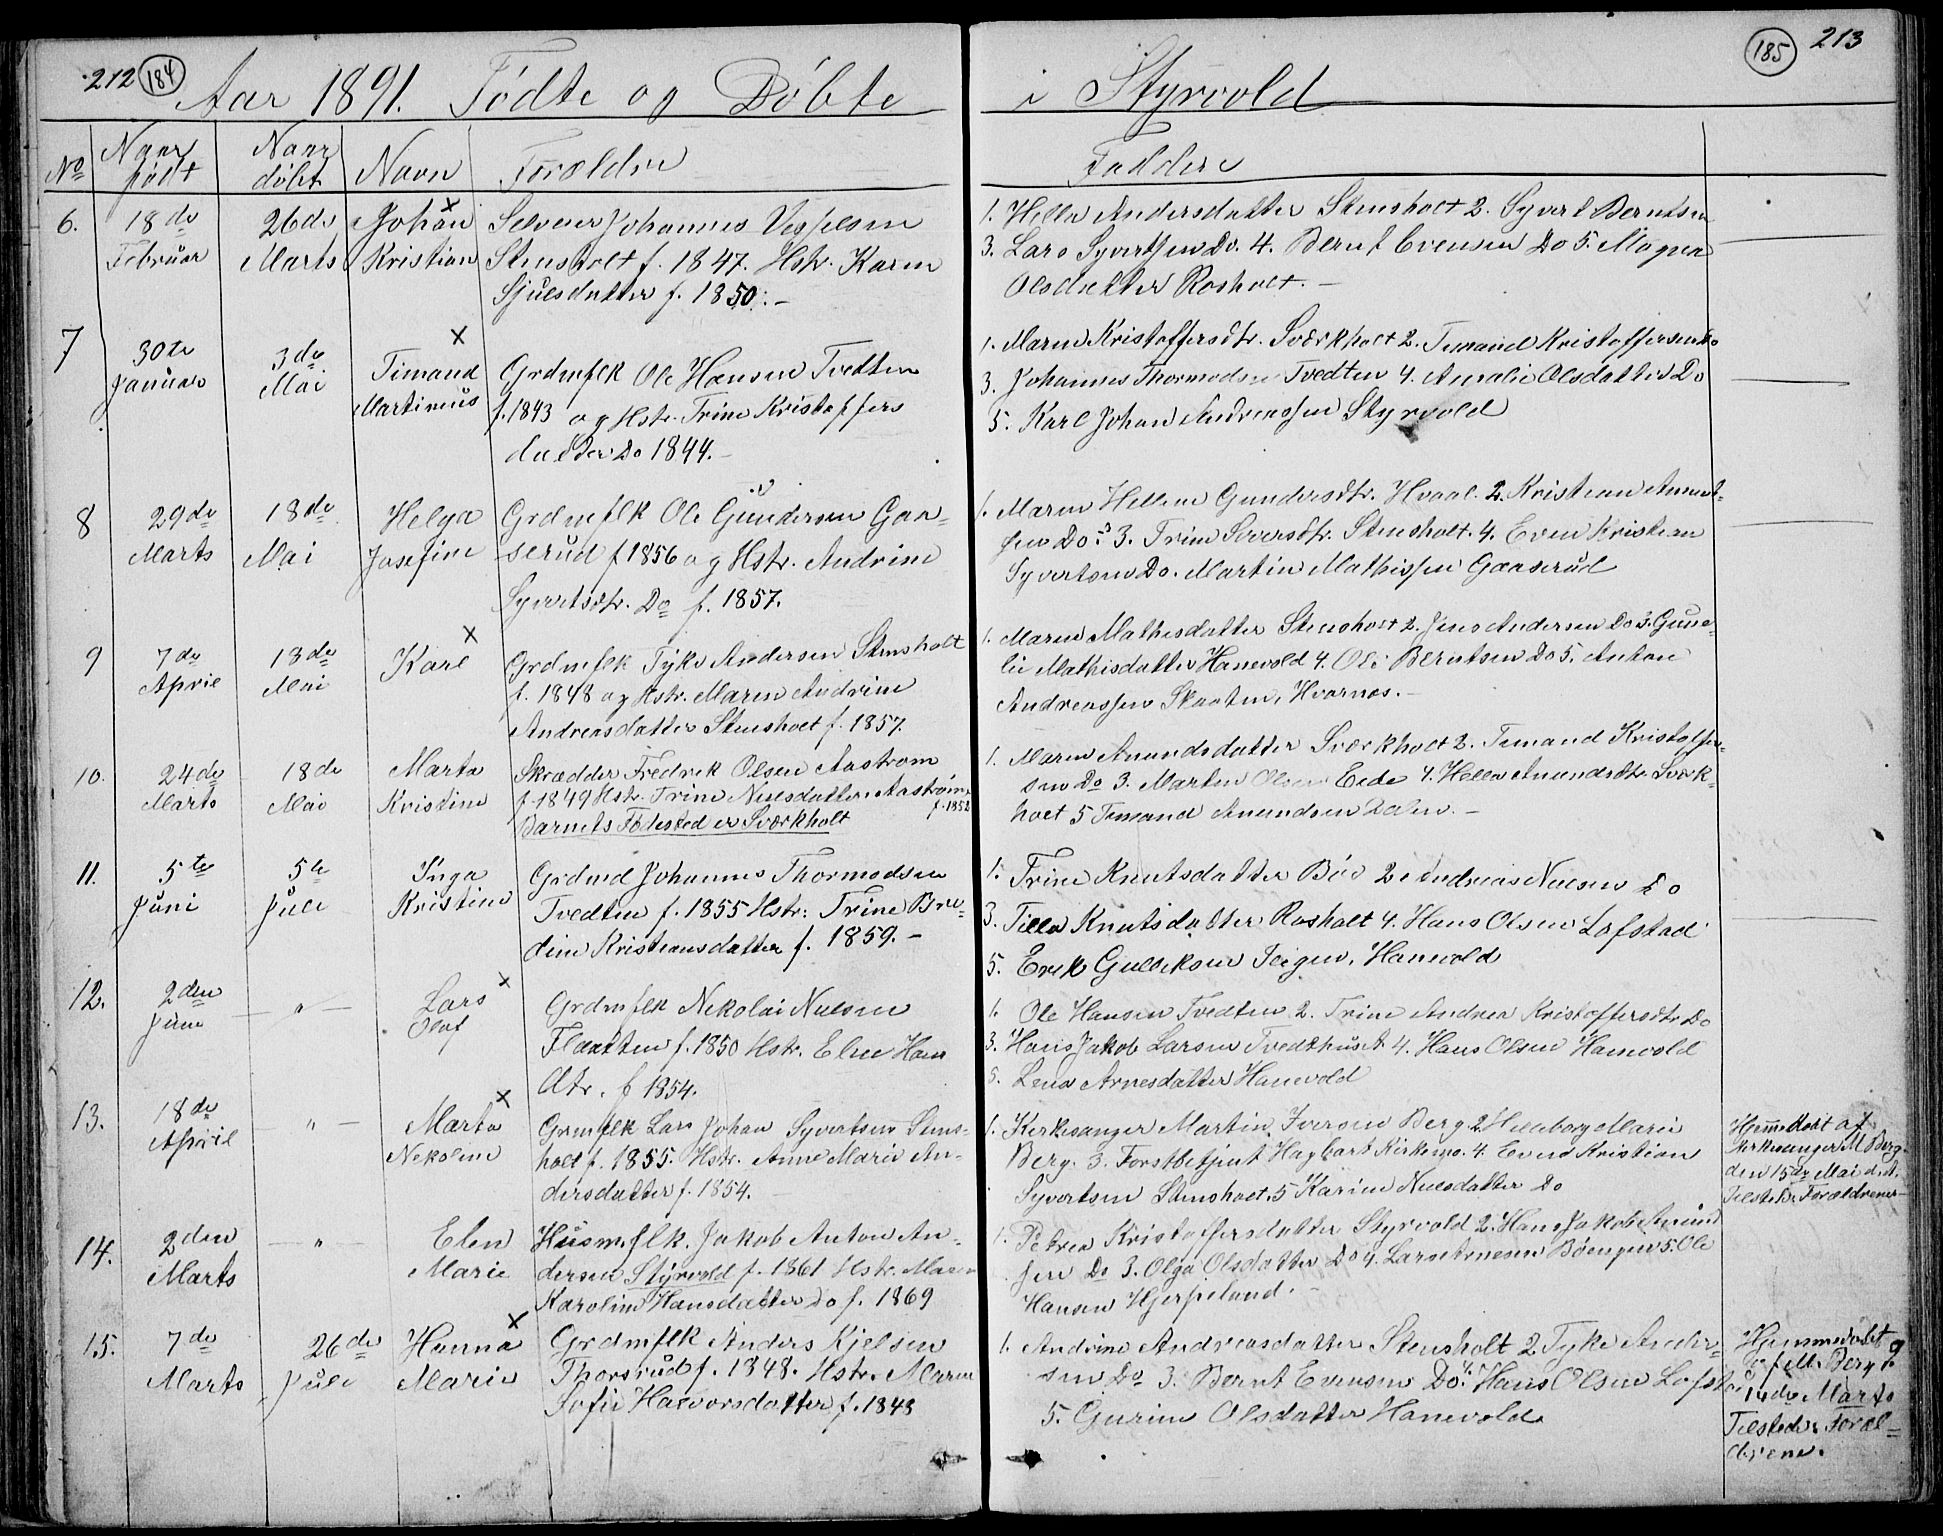 212 (184) Aar 1891. Födte og Döbte
No Naar födt Naar döbt Navn Forældre
6. 18de Februar 26de Marts Johan Kristian Selveier Johannes
Stensholt f. 1847. Hstr. Karen
Sjulsdatter f. 1850.-
7 30te Januar 3de Mai Timand Martinius Grdmflk Ole Hansen Tvedten
f. 1843 og Hstr. Trine Kristoffers
datter Do 1844.-
8 29de Marts 18de Mai Helga Josefine Grdmflk Ole Gundersen Gaa=
serud f 1856 og Hstr. Andrine
Syvertsdtr. Do f. 1857.
9 7de April 18de Mai Karl Grdmflk Tyke Andersen Stensholt
f. 1848 og Hstr. Maren Andrine
Andreasdatter Stensholt f. 1857.
10. 24de Marts 18de Mai Marta Kristine Skrædder Fredrik Olsen Aastrøm
f. 1849 Hstr. Trine Nilsdatter Aastrøm f. 1852
Barnets Födested er Sværkholt
11. 5te Juni 5te Juli Inga Kristine Grdmd Johannes Thormodsen
Tvedten f. 1855 Hstr: Trine Bre=
dine Kristiansdatter f. 1859.-
12. 2den Juni — " — Lars Olaf Grdmflk Nikolai Nilsen
Flaatten f. 1850 Hstr. Elen Hans
dtr. f 1854.
13. 18de April — " — Marta Nikoline Grmflk Lars Johan Syvertsen Stens=
holt f. 1855. Hstr. Anne Marie An=
dersdatter f. 1854.
14. 2den Marts — " — Elen Marie Husm.flk. Jakob Anton An=
dersen Styrvold f. 1861 Hstr. Maren
Karoline Hansdatter Do f. 1869
15. 7de Marts 26de Juli Hanna Marie Grdmflk Anders Kjelsen
Thorsrud f. 1848. Hstr. Maren
Sofie Halvorsdatter f. 1848
i Styrvold (185) 213
Faddere
1. Hella Andersdatter Stensholt 2. Syvert Berntsen
3. Lars Syvertsen Do. 4. Bernt Evensen Do 5. Magna
Olsdatter Rosholt.-
1. Maren Kristoffersdtr. Sværkholt 2. Timand Kristoffersen Do
3. Johannes Thormodsen Tvedten 4. Amalie Olsdatter Do
5. Karl Johan Andreassen Styrvold
1. Maren Helline Gundersdtr. Hvaal. 2. Kristian Amunt-
sen Do. 3. Trine Siversdtr. Stensholt. 4. Even Kristian
Syvertsen Do. Martin Mathissen Gaaserud
1. Maren Mathisdatter Stensholt 2. Jens Andersen Do 3. Gune-
lie Mathisdatter Hanevold 4. Ole Berntsen Do 5. Anton
Andreassen Skaaten, Hvarnes.-
1. Maren Amundsdatter Sværkholt 2. Timand Kristoffer-
sen Do 3. Martin Olsen Eide 4. Hella Amundsdtr. Sværk-
holt 5 Timand Amundsen Dalen.-
1. Trine Knutsdatter Böe 2. Andreas Nilsen Do
3. Tilla Knutsdatter Rosholt 4. Hans Olsen Lofstad
5. Erik Gulliksen Teigen, Hanevold
1. Ole Hansen Tvedten 2. Trine Andrea Kristoffersdtr Do
3. Hans Jakob Larsen Tvedthuset 4. Hans Olsen Hanevold
5. Lena Arnesdatter Hanevold
1. Kirkesanger Martin Iversen Berg 2 Hilleborg Marie
Berg. 3. Forstbetjent Hagbart Kirkemo. 4. Even Kristian
Syvertsen Stensholt. 5 Karine Nilsdatter Do
Hjemmedöbt af
Kirkesanger M Berg
den 15de Mai d. A.
Tilstede: Forældrene
1. Petrea Kristoffersdatter Styrvold 2. Hans Jakob Amund
sen Do 3. Olga Olsdatter Do 4. Lars Arnesen Böengen 5. Ole
Hansen Hjerpeland.-
1. Andrine Andreasdatter Stensholt 2. Tyke Ander=
sen Do 3. Bernt Evensen Do. 4. Hans Olsen Lofstad
5. Gurine Olsdatter Hanevold
Hjemmedöbt
af M. Berg
Marts
Tilstede: Foræl=
drene.